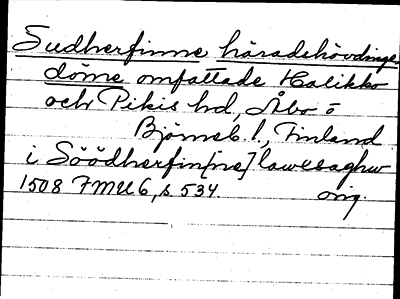 Sudherfinne häradshövdinge-
döme omfattade Halikko
och Pikis hd, Åbo o
Björneb. l., Finland
i Söödherfin[ne] lawesaghw
1508 FMU 6, s. 534 orig.